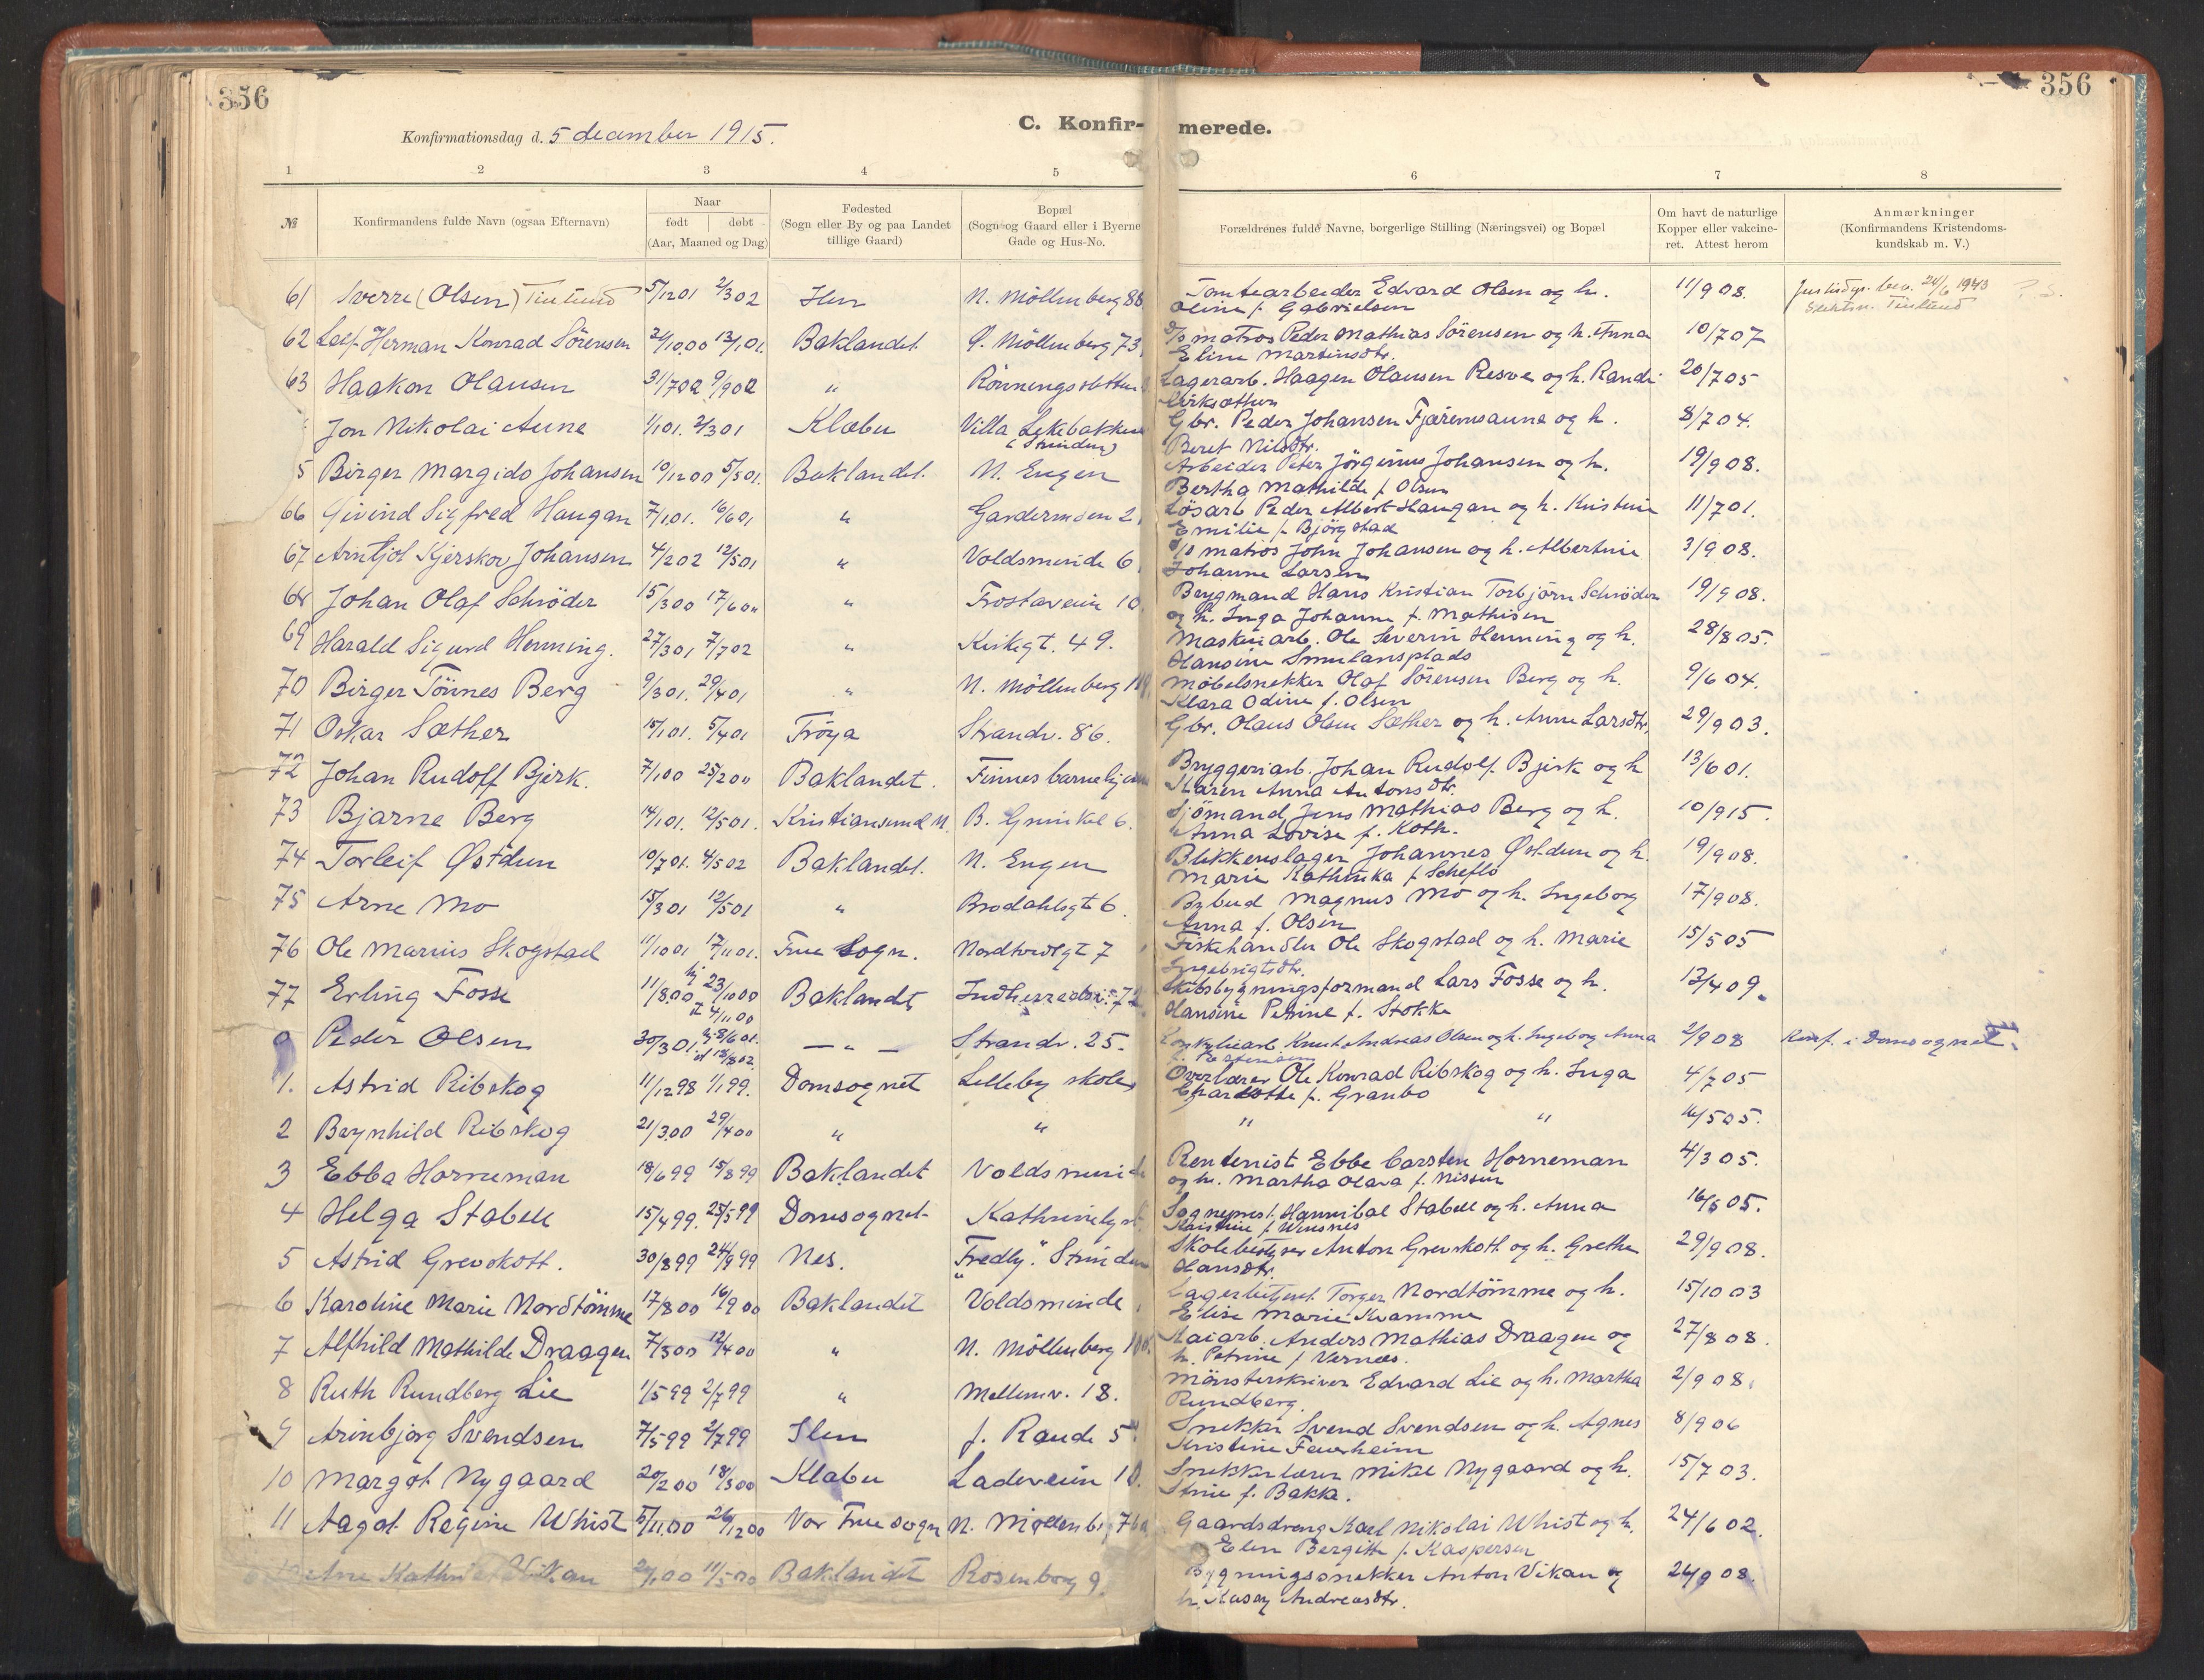 356
356
Konfirmationsdag d. 5 december 1915.
C. Konfir-
merede.
1 2 3 4 5 6 7 8
№ Konfirmandens fulde Navn (ogsaa Efternavn)
Naar
født døbt
(Aar, Maaned og Dag)
Fødested
(Sogn eller By og paa Landet
tillige Gaard)
Bopæl
(Sogn og Gaard eller i Byerne
Gade og Hus-No.
Forældrenes fulde Navne, borgerlige Stilling (Næringsvei) og Bopæl
Om havt de naturlige
Kopper eller vakcine-
ret. Attest herom
Anmærkninger
(Konfirmandens Kristendoms-
kundskab m. V.)
61 Sverre (Olsen) 5/12 01 2/3 02 Ilen N. Möllenberg 86 Tomtearbeider Edvard Olsen og h. 11/9 08. 24/6 1943
Oline f. Gabrielsen
62 Leif Herman Konrad Sörensen 24/10 00 13/1 01. Baklandet Möllenberg 73 matros Peder Mathias Sörensen og h. Anna 10/7 07
Eline Martinsdtr.
63 Haakon Olausen 31/7 02 9/9 02 " Rönningsletten Lagerarb. Haagen Olausen Resve og h. Randi 20/7 05
Eriksathen
Jon Nikolai Aune 1/1 01. 2/3 01 Klæbu Villa Lekebakken Gbr. Peder Johansen Fjæremsaune og h. 8/7 04.
(Strinden) Beret Nilsdtr.
5 Birger Margido Johansen 10/12 00 5/5 01. Baklandet. N. Engen Arbeider Peter Jörginus Johansen og h. 19/9 08.
Bertha Mathilde f. Olsen
66 Eivind Sigfred Haugan 7/1 01. 16/6 01 " Gardermoen 2. Lösarb Peder Albert Haugan og h. Kristine 11/7 01.
Emilie f. Björgstad
67 Arntjot Kjerskov Johansen 4/2 02 12/5 01 " Voldsminde 6. matros John Johansen og h. Albertine 3/9 08.
Johanne Larsen
68 Johan Olaf Schröder 15/3 00 17/6 00 " Frostaveien 10. Brygmand Hans Kristian Torbjörn Schröder 19/9 08.
og h. Inga Johanne f. Mathisen
69 Harald Sigurd Henning. 27/3 01 7/7 02 " Kirkegt. 49. Maskinarb. Ole Severin Henning og h. 28/8 05.
Hansine Smulansplads
70 Birger Tönnes Berg 9/3 01. 29/4 01 " N. Möllenberg 119. Möbelsnekker Olaf Sörensen Berg og h. 9/6 04.
Klara Odine f. Olsen
71 Oskar Sæther 15/1 01. 5/4 01 Fröya Strandv. 86. Gbr. Olaus Olsen Sæther og h. Anne Larsdtr. 29/9 03.
72 Johan Rudolf Bjerk. 7/1 00 25/2 00 Baklandet. Finnes barnehjem Bryggeriarb. Johan Rudolf Bjerk og h 13/6 01.
Karen Anna Antonsdtr.
73 Bjarne Berg 14/1 01. 12/5 01. Kristiansund N. B. Grinikel 6. Sjömand Jens Mathias Berg og h. 10/9 15.
Anna Lovise f. Koth.
74 Torleif Østdun 10/7 01. 4/5 02 Baklandet. N. Engen Blikkenslager Johannes Østdun og h. 19/9 08.
Marie Kathinka f. Scheflo
75 Arne Mo 15/3 01 12/5 01 " Brodahlsgt 6. Bybud Magnus Mo og h. Ingeborg 17/9 08.
Anna f. Olsen
76 Ole Marius Skogstad 11/10 01 17/11 01. Frue Sogn. Nordfordsgt 7 Fiskehandler Ole Skogstad og h. Marie 15/5 05
Ingebrigtsdtr.
77 Erling Fosse 11/8 00 hj 23/10 00 Baklandet Indherredsv. 72 Skibsbygningsformand Lars Fosse og h. 12/4 09.
d 4/11 00 Hansine Petrine f. Stokke
Peder Olsen 30/3 01. hj 8/6 01. — " — Strandv. 25. Knut Andreas Olsen og h. Ingeborg Anna 2/9 08 Konf. i Domsognet.
d 18/8 02
1. Astrid Ribskog 11/12 98 1/1 99. Domsognet Lilleby skole Overlærer Ole Konrad Ribskog og h. Inga 4/7 05
Charlotte f. Granbo
2 Brynhild Ribskog 21/3 00 29/4 00 " " " " 16/5 05.
3 Ebba Horneman 18/6 99 15/8 99 Baklandet Voldsminde Rentenist Ebbe Carsten Horneman 4/3 05.
og h. Martha Olava f. Nissen
4 Helga Stabell 15/4 99. 25/5 99 Domsognet Kathrinelyst Sognepr. Hannibal Stabell og h. Anna 16/5 05.
Kristine f. Winsnes
5 Astrid Grevskott. 30/8 99 24/9 99 Nes. "Fredly". Strinden Skolebestyrer Anton Grevskott og h. Grethe 29/9 08.
Hansdtr.
6 Karoline Marie Nordtömme 17/8 00 16/9 00 Baklandet Voldsminde Lagerbetjent Torger Nordtömme og h. 15/10 03
Elise Marie Kvamme
7 Alfhild Mathilde Draagen 7/3 00 12/4 00 " N. Möllenberg Anders Mathias Draagen og 27/8 08.
h. Petrine f Vernæs.
8 Ruth Rundberg Lie 1/5 99 2/7 99 " Mellemv. 18. Mönsterskriver Edvard Lie og h. Martha 2/9 08.
Rundberg.
9 Arinbjörg Svendsen 7/5 99 2/7 99 Ilen f. Raude 5 Snekker Svend Svendsen og h. Agnes 8/9 06
Kristine Feuerheim
10 Margot Nygaard 20/2 00 18/3 00 Klæbu Ladeveien 10. Snekkerlærer Mikal Nygaard og h. 15/7 03.
Stine f. Bakk.
11 Aagot Regine Whist 5/11 00 26/12 00 Vor Frue sogn N. Möllenbg 76 Gaardsdreng Karl Nikolai Whist og h. 24/6 02.
Elen Bergitte f. Kaspersen
Ane Kathrine Vikan 11/5 00 Baklandet Rosenborg 9. Bygningssnekker Anton Vikan og 26/9 08.
h. Kasey Andreasdtr.